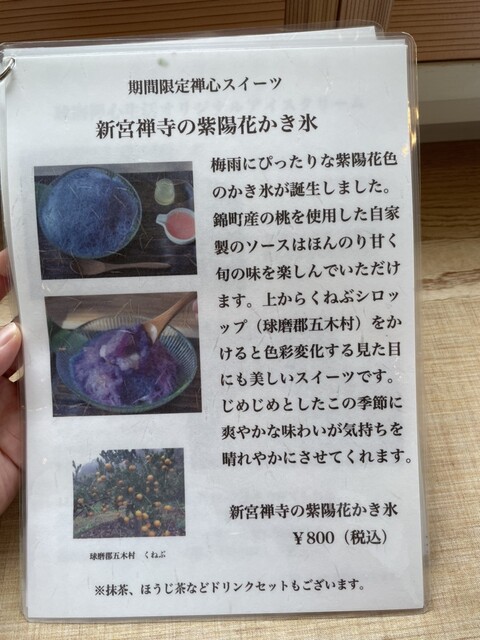 期間限定禅心スイーツ
新宮禅寺の紫陽花かき氷
梅雨にぴったりな紫陽花色
のかき氷が誕生しました。
錦町産の桃を使用した自家
製のソースはほんのり甘く
旬の味を楽しんでいただけ
ます。上からくねぶシロッ
ップ（球磨郡五木村）をか
けると色彩変化する見た目
にも美しいスイーツです。
じめじめとしたこの季節に
爽やかな味わいが気持ちを
晴れやかにさせてくれます。
新宮禅寺の紫陽花かき氷
￥800（税込）
球磨郡五木村　くねぶ
※抹茶、ほうじ茶などドリンクセットもございます。